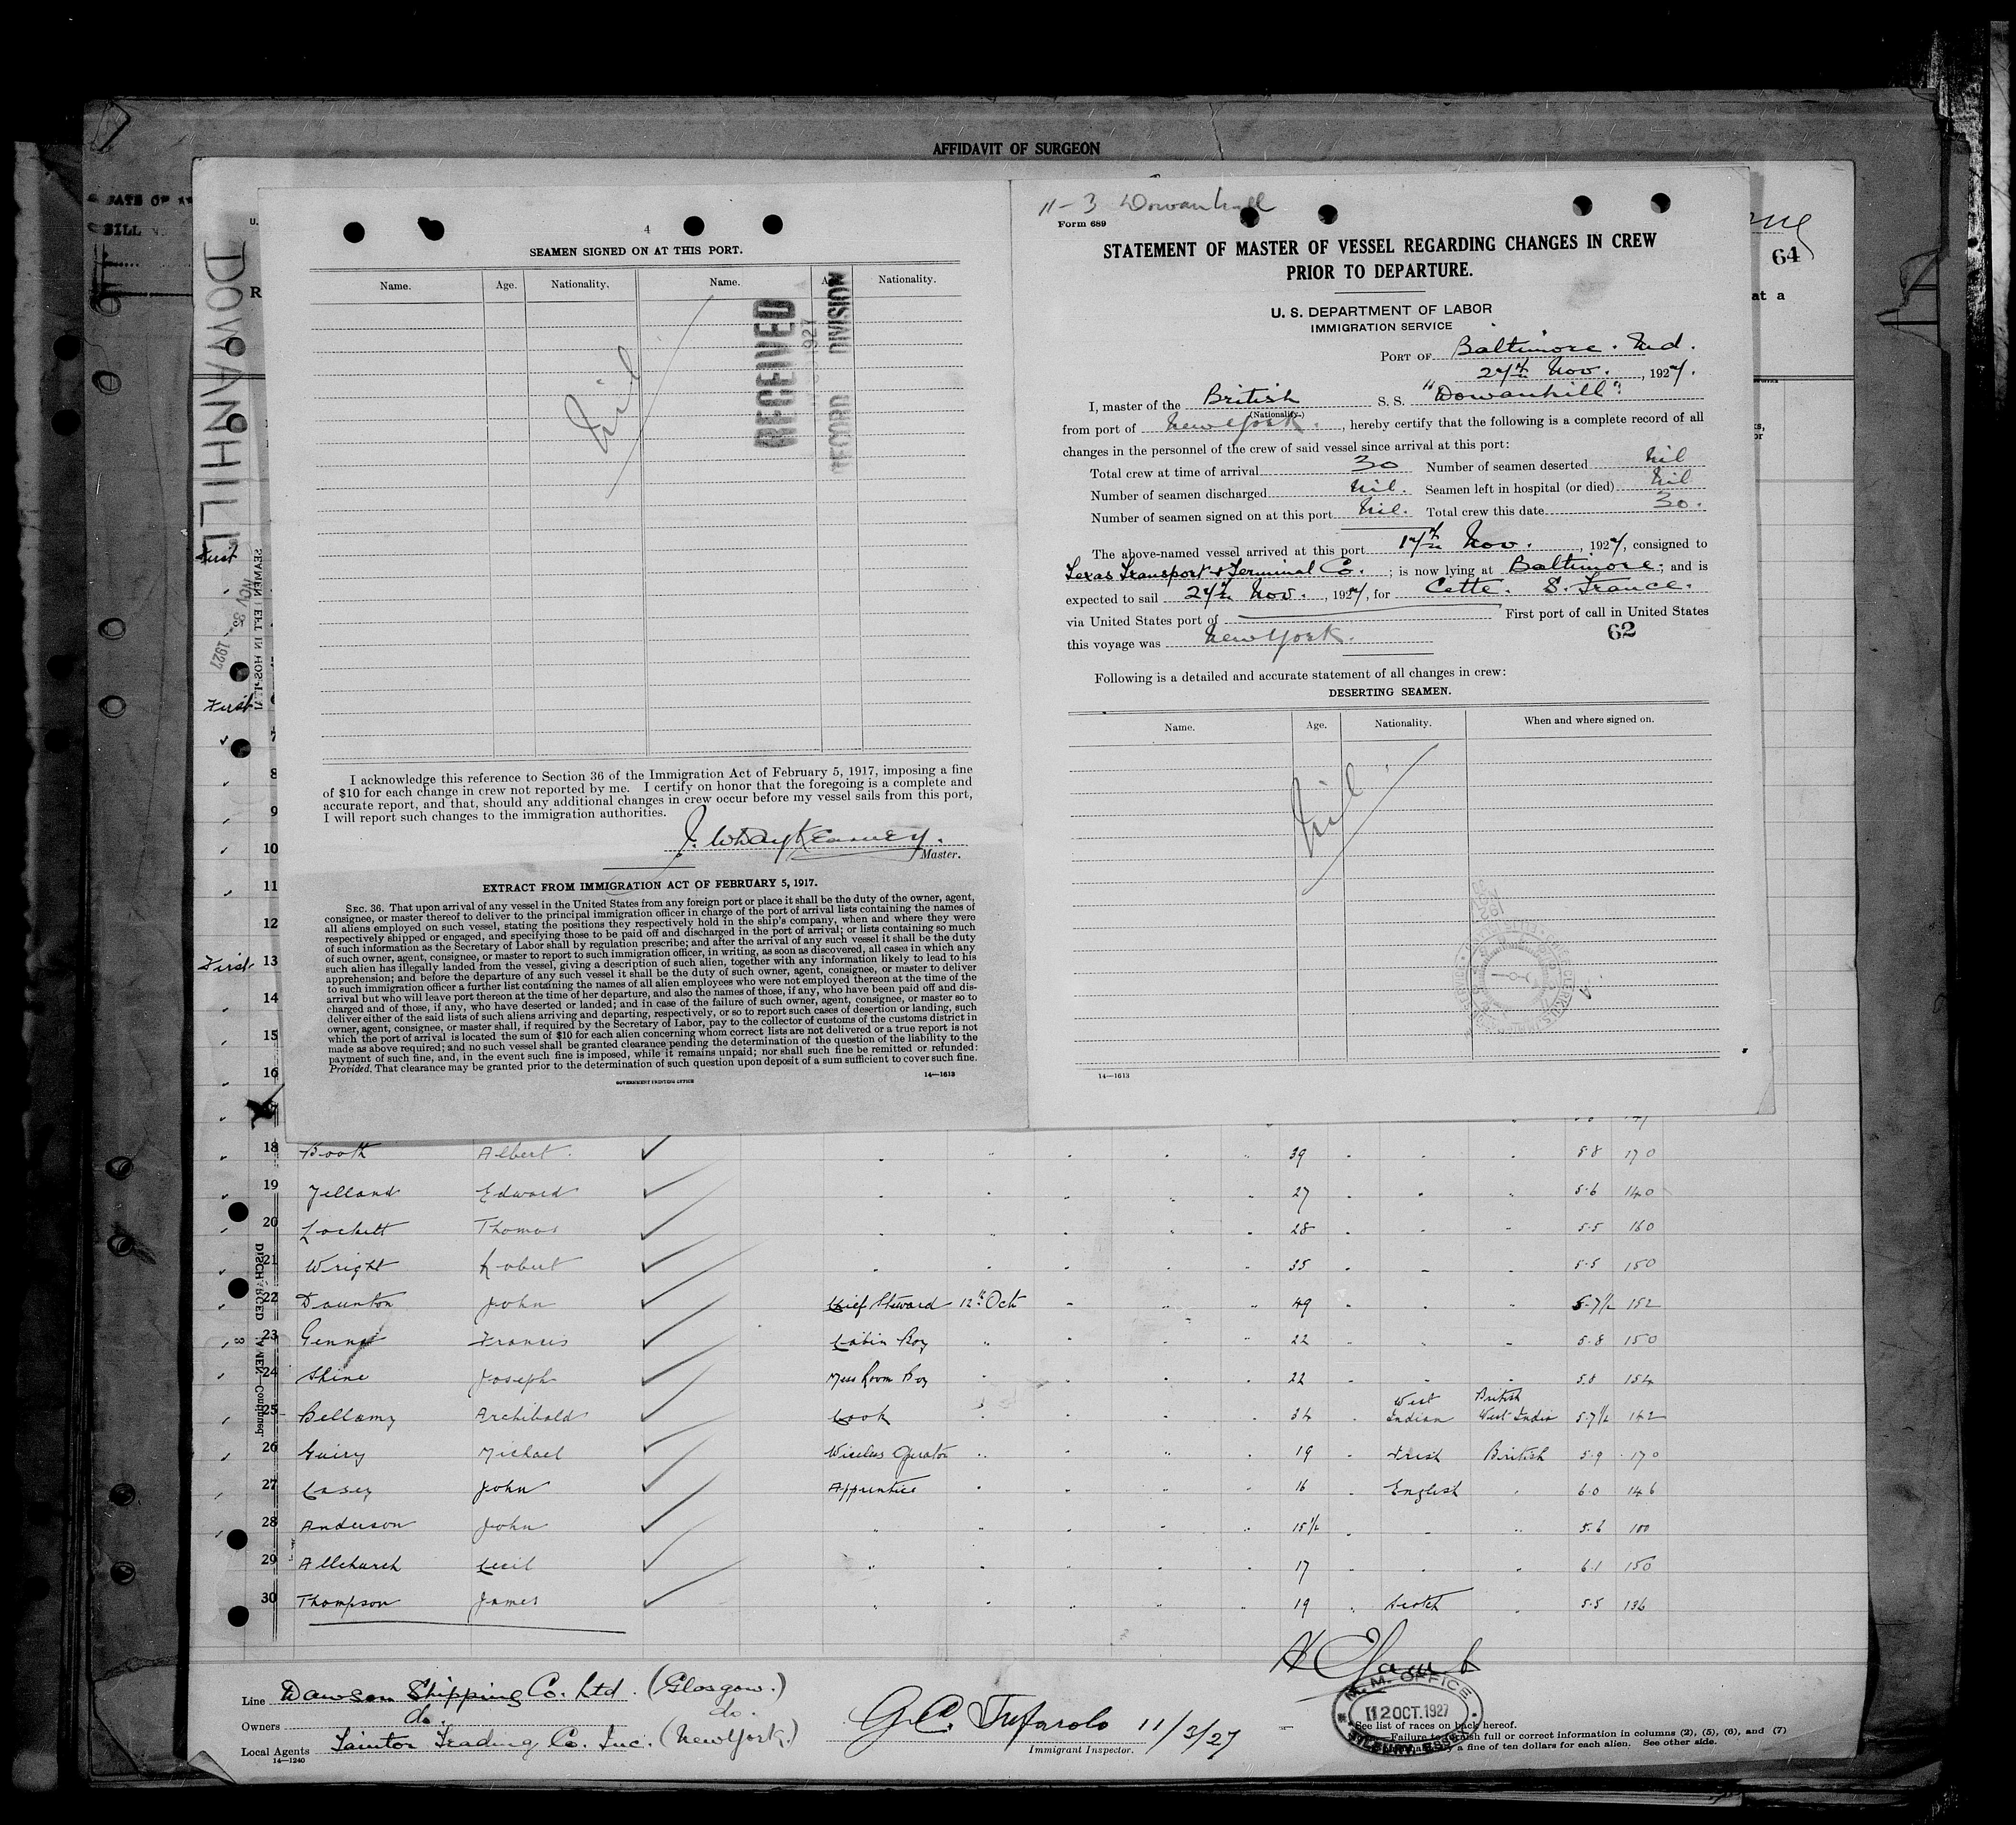 AFFIDAVIT OF SURGEON
64
at a
DOWANHILL
SEAMEN LEFT IN HOSPITAL
NOV 1927
First
First
First
4
SEAMEN SIGNED ON AT THIS PORT.
Name. Age. Nationality. Name. Age. Nationality.
Nil
RECEIVED
1927
RECORD DIVISION
I acknowledge this reference to Section 36 of the Immigration Act of February 5, 1917, imposing a fine
of $10 for each change in crew not reported by me. I certify on honor that the foregoing is a complete and
accurate report, and that, should any additional changes in crew occur before my vessel sails from this port,
I will report such changes to the immigration authorities.
Master.
EXTRACT FROM IMMIGRATION ACT OF FEBRUARY 5, 1917.
SEC. 36. That upon arrival of any vessel in the United States from any foreign port or place it shall be the duty of the owner, agent,
consignee, or master thereof to deliver to the principal immigration officer in charge of the port of arrival lists containing the names of
all aliens employed on such vessel, stating the positions they respectively hold in the ship's company, when and where they were
respectively shipped or engaged, and specifying those to be paid off and discharged in the port of arrival; or lists containing so much
of such information as the Secretary of Labor shall by regulation prescribe; and after the arrival of any such vessel it shall be the duty
of such owner, agent, consignee, or master to report to such immigration officer, in writing, as soon as discovered, all cases in which any
such alien has illegally landed from the vessel, giving a description of such alien, together with any information likely to lead to his
apprehension; and before the departure of any such vessel it shall be the duty of such owner, agent, consignee, or master to deliver
to such immigration officer a further list containing the names of all alien employees who were not employed thereon at the time of the
arrival but who will leave port thereon at the time of her departure, and also the names of those, if any, who have been paid off and dis-
charged and of those, if any, who have deserted or landed; and in case of the failure of such owner, agent, consignee, or master so to
deliver either of the said lists of such aliens arriving and departing, respectively, or so to report such cases of desertion or landing, such
owner, agent, consignee, or master shall, if required by the Secretary of Labor, pay to the collector of customs of the customs district in
which the port of arrival is located the sum of $10 for each alien concerning whom correct lists are not delivered or a true report is not
made as above required; and no such vessel shall be granted clearance pending the determination of the question of the liability to the
payment of such fine, and, in the event such fine is imposed, while it remains unpaid; nor shall such fine be remitted or refunded:
Provided, That clearance may be granted prior to the determination of such question upon deposit of a sum sufficient to cover such fine.
GOVERNMENT PRINTING OFFICE
14—1613
11-3 Dowanhill
Form 689
STATEMENT OF MASTER OF VESSEL REGARDING CHANGES IN CREW
PRIOR TO DEPARTURE.
U. S. DEPARTMENT OF LABOR
IMMIGRATION SERVICE
PORT OF Baltimore. Md.
24th Nov., 1927.
I, master of the British S. S. "Dowanhill".
(Nationality.)
from port of New York., hereby certify that the following is a complete record of all
changes in the personnel of the crew of said vessel since arrival at this port:
Total crew at time of arrival 30 Number of seamen deserted Nil
Number of seamen discharged Nil. Seamen left in hospital (or died) Nil
Number of seamen signed on at this port Nil. Total crew this date 30.
The above-named vessel arrived at this port 17th Nov., 1927, consigned to
Texas Transport & Terminal Co.; is now lying at Baltimore; and is
expected to sail 24th Nov., 1927, for Cette. S. France.
via United States port of First port of call in United States
this voyage was New York.
62
Following is a detailed and accurate statement of all changes in crew:
DESERTING SEAMEN.
Name. Age. Nationality. When and where signed on.
Nil
14—1613
8
9
10
11
12
13
14
15
16
18 Booth Albert 39 5-8 170
19 Jelland Edward 27 5-6 140
20 Lockett Thomas 28 5-5 160
21 Wright Robert 35 5-5 150
22 Daunton John Chief Steward 12th Oct 49 5-7½ 152
23 Francis Cabin Boy 22 5-8 150
24 Shine Joseph Mess Room Boy 22 5.8 154
25 Bellamy Archibald Cook 34 West Indian British West India 5-7½ 142
26 Guiry Michael Wireless Operator 19 Irish British 5-9 170
27 Casey John Apprentice 16 English 6.0 146
28 Anderson John " 15½ 5.6 100
29 Allchurch Cecil " 17 6.1 150
30 Thompson James " 19 Scotch 5.5 136
DISCHARGED SEAMEN—Continued.
3
Line Dawson Shipping Co. Ltd. (Glasgow.)
Owners do. do.
Local Agents Taintor Trading Co. Inc. (New York.)
14—1240
G.C. Tufarolo 11/3/27
Immigrant Inspector.
M. M. OFFICE
12 OCT. 1927
TILBURY, ESSEX
See list of races on back hereof.
Failure to furnish full or correct information in columns (2), (5), (6), and (7)
a fine of ten dollars for each alien. See other side.